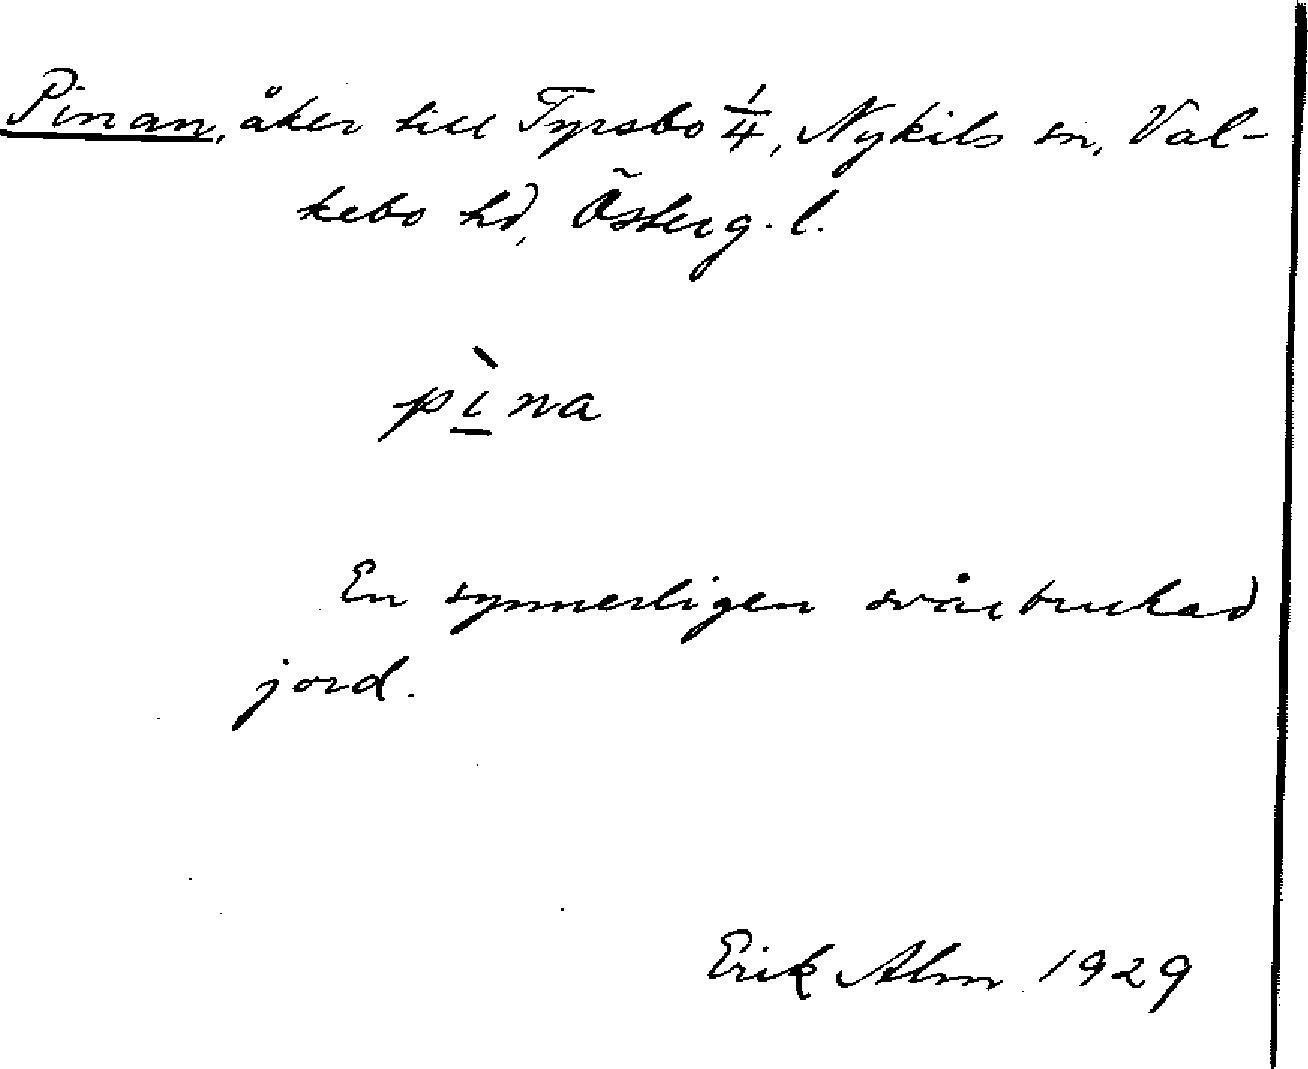 Pinan, åker till Tyrsbo 1/4, Nykils sn, Val-
kebo hd, Österg. l.
pì̱na
En synnerligen svårbrukad
jord.
Erik Alm 1929